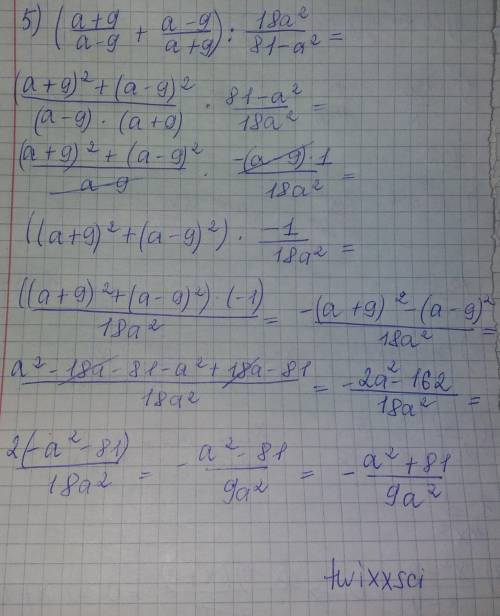 5) (a+9/a-9 + a-9/a+9) : 18a²/81-a² =
(a+9)²+(a-9)²/(a-9)·(a+9) · 81-a²/18a² =
(a+9)²+(a-9)²/a-9 · -(a-9)·1/18a² =
((a+9)²+(a-9)²) · -1/18a² =
((a+9)²+(a-9)²)·(-1)/18a² = -(a+9)²-(a-9)²/18a² =
a²-18a-81-a²+18a-81/18a² = -2a²-162/18a² =
2(-a²-81)/18a² = - a²-81/9a² = - a²+81/9a²
twixxsci